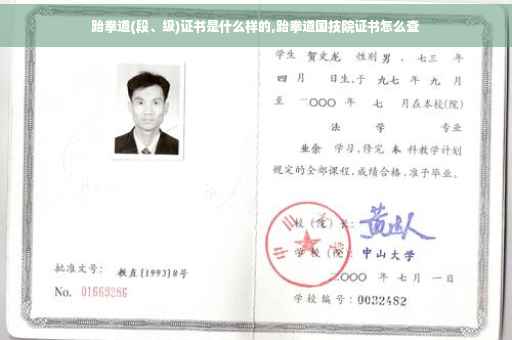 跆拳道(段、级)证书是什么样的,跆拳道国技院证书怎么查
学生 贺文龙 性别 男 、七三 年
四 月 日生,于 九七 年 九 月
至 二〇〇〇 年 七 月在本校(院)
法 学 专业
业余 学习,修完 本 科教学计划
规定的全部课程,成绩合格,准予毕业。
校 (院) 长:
学 校 (院): 中山大学
二〇〇〇 年 七 月 一 日
学校编号: 0032482
批准文号: 教直[1993]8号
No. 01669286